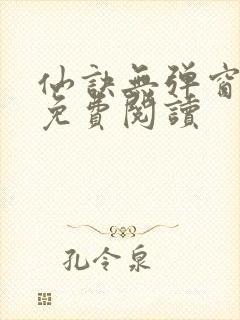 仙訣無彈窗
免費閱讀
孔令泉